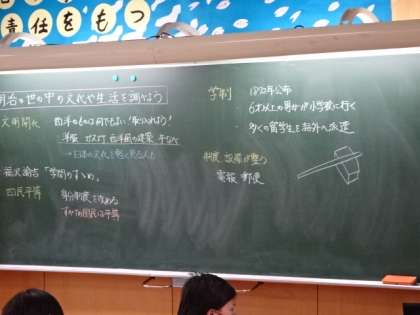 責任をもつ
明治の世の中の文化や生活を調べよう
文明開化
西洋のものは何でもよい!取り入れよう!
洋服 ガス灯 西洋風の建築 牛など
→日本の文化を軽く見る人も
福沢諭吉「学問のすゝめ」
四民平等
身分制度を改める
すべての国民は平等
学制
1872年公布
6才以上の男女が小学校に行く
多くの留学生を海外へ派遣
制度 設備が整う
電報 郵便